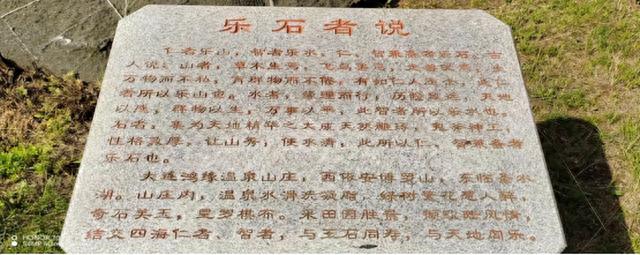 乐石者说
仁者乐山，智者乐水。仁、智兼备者乐石。古
人说：山者，草木生焉，飞鸟
万物而不私，育群物而不倦，有如仁人志士，此仁
者所以乐山也。水者，缘理而行，历险致远，天地
以成，群物以生，万事以平，此智者所以乐水也。
石者，集为天地精华之大成天然雕琢，鬼斧神工，
性格敦厚，让山秀，使水清，此所以仁、智兼备者
乐石也。
大连鸿缘温泉山庄，西依安博罗山，东临碧水
湖。山庄内，温泉水滑洗凝脂，绿树繁花惹人醉，
奇石美玉，星罗棋布。采田园胜景，风情，
结交四海仁者、智者，与玉石同寿，与天地同乐。
HONOR